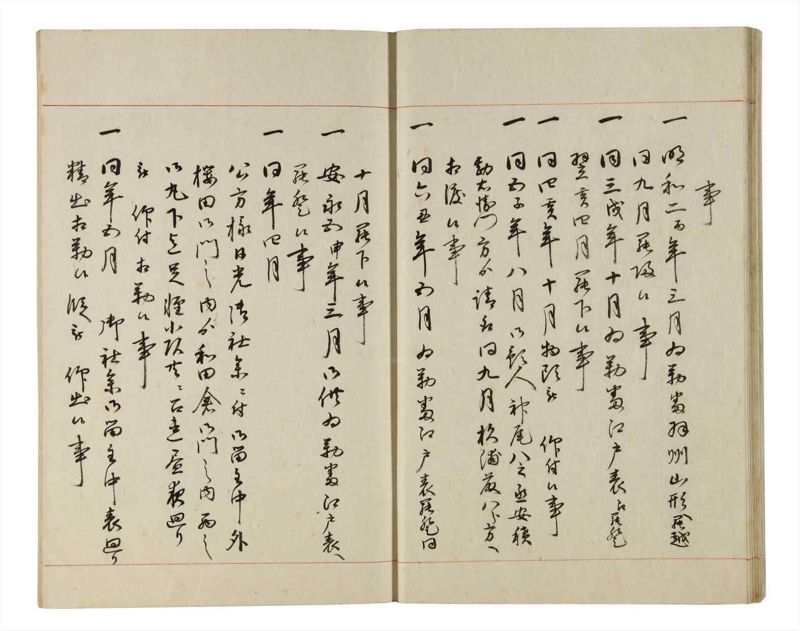 事
一 明和二酉年三月為勤番羽州山形罷越
同九月罷帰候事
一 同三戌年十月為勤番江戸表江罷登
翌亥四月罷下候事
一 同四亥年十月物頭被 仰付候事
一 同五子年八月御預人神尾八之丞安積
勘左衛門方ゟ請取同九月 方へ
相渡候事
一 同六丑年五月為勤番江戸表罷登同
十月罷下候事
一 安永五申年三月御供為勤番江戸表へ
罷登候事
一 同年四月
公方様日光御社参ニ付御留主中外
桜田御門之内ゟ和田倉御門之内迄之
御丸下立足軽小頭共ニ召連昼夜廻り
被 仰付相勤候事
一 同年五月 御社参御留主中表廻り
精出相勤候段被 仰出候事